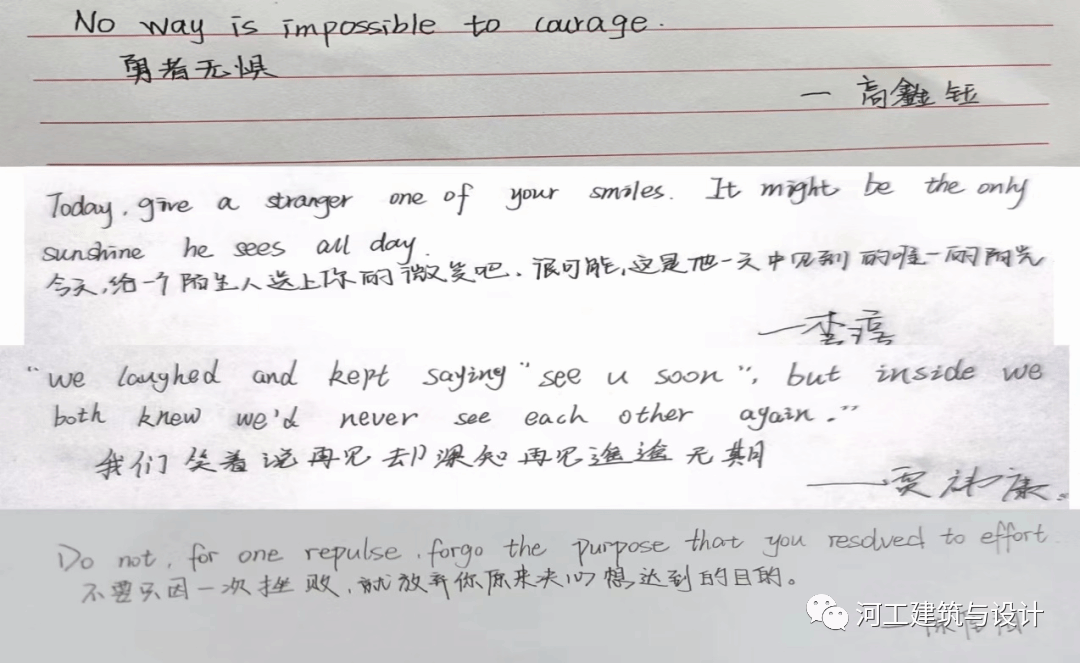 No way is impossible to courage.
勇者无惧
— 高鑫钰
Today, give a stranger one of your smiles. It might be the only
sunshine he sees all day.
今天,给一个陌生人送上你的微笑吧.很可能,这是他一天中见到的唯一的阳光
—李
"we laughed and kept saying "see u soon", but inside we
both knew we'd never see each other again."
我们笑着说再见却深知再见遥遥无期
——贾 康.
Do not, for one repulse, forgo the purpose that you resolved to effort.
不要只因一次挫败,就放弃你原来决心想达到的目的。
河工建筑与设计